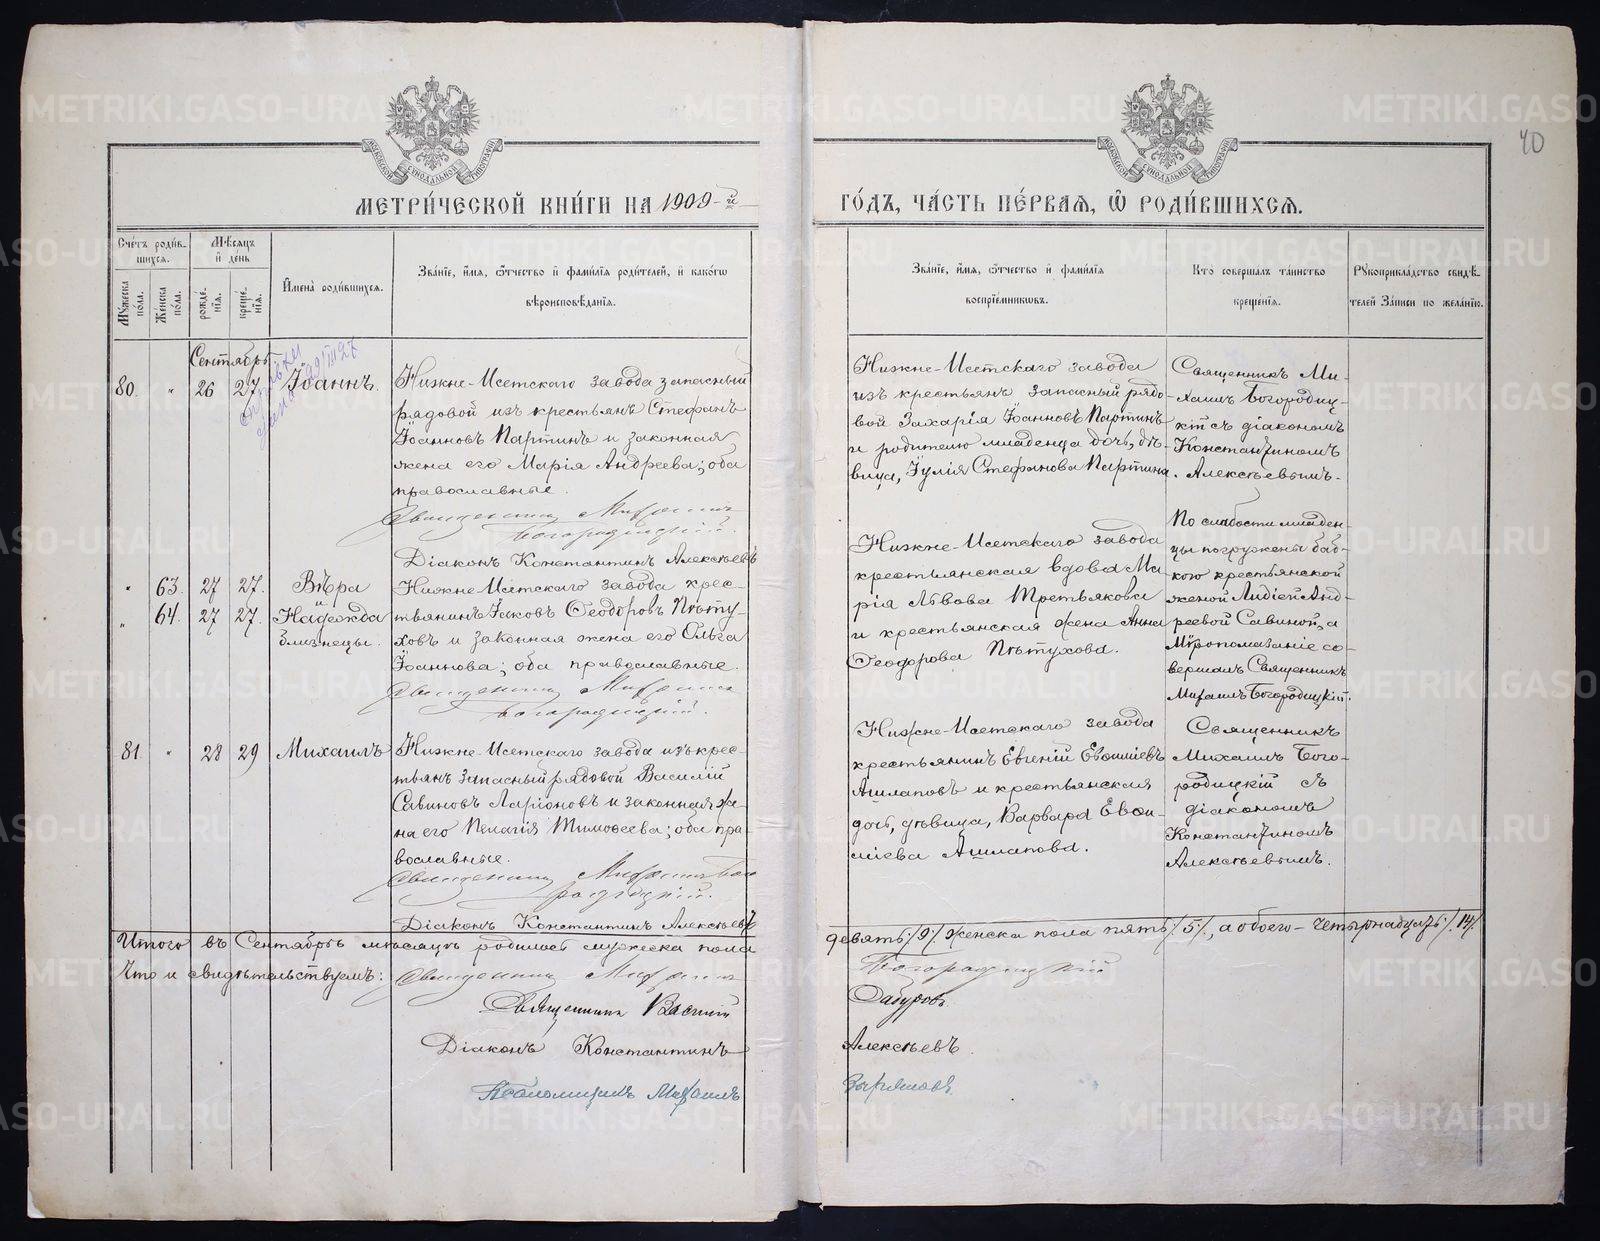 МЕТРИ́ЧЕСКОЙ КНИ́ГИ НА 1909-й
ГО́ДЪ, ЧА́СТЬ ПЕ́РВАЯ, Ѡ РОДИ́ВШИХСЯ.
40
Сче́тъ роди́в-
шихся.
Му́жеска по́ла.
Же́нска по́ла.
Мѣ́сяцъ
и де́нь
рожде́нїя.
креще́нїя.
И́мена̀ роди́вшихся.
Зва́нїе, и́мя, ѻ́тчество и фами́лїя роди́телей, и како́гѡ
вѣроисповѣ́данїя.
Зва́нїе, и́мя, ѻ́тчество и фами́лїя
воспрїе́мникѡвъ.
Кто̀ соверша́лъ та́инство
креще́нїя.
Рꙋкоприкла́дство свидѣ́-
телей за́писи по жела́нїю.
Сентябрь
80 " 26 27 Іоаннъ.
Нижне-Исетскаго завода запасный
рядовой изъ крестьянъ Стефанъ
Іоанновъ Партинъ и законная
жена его Марія Андреева; оба
православные.
Священникъ Михаилъ
Богородицкій.
Діаконъ Константинъ Алексѣевъ
Нижне-Исетскаго завода
изъ крестьянъ запасный рядо-
вой Захарія Іоанновъ Партинъ
и родителю младенца дочь, дѣ-
вица, Іулія Стефанова Партина
Священникъ Ми-
хаилъ Богородиц-
кій съ діакономъ
Константиномъ
Алексѣевымъ.
" 63. 27 27. Вѣра
и
" 64. 27 27. Надежда
близнецы.
Нижне-Исетскаго завода крес-
тьянинъ Іаковъ Ѳеодоровъ Пѣту-
ховъ и законная жена его Ольга
Іоаннова; оба православные.
Священникъ Михаилъ
Богородицкій.
Нижне-Исетскаго завода
крестьянская вдова Ма-
рія Львова Третьякова
и крестьянская жена Анна
Ѳеодорова Пѣтухова.
По слабости младен-
цы погружены баб-
кою крестьянской
женой Лидіей Анд-
реевой Савиной, а
Мѵропомазаніе со-
вершалъ Священникъ
Михаилъ Богородицкій.
81. " 28 29 Михаилъ
Нижне-Исетскаго завода изъ крес-
тьянъ запасный рядовой Василій
Савиновъ Ларіоновъ и законная же-
на его Пелагія Тимоѳеева; оба пра-
вославные.
Священникъ Михаилъ Бого
родицкій.
Діаконъ Константинъ Алексѣевъ
Нижне-Исетскаго завода
крестьянинъ Евгеній
Ашлаповъ и крестьянская
дочь, дѣвица, Варвара
Ашлапова.
Священникъ
Михаилъ Бого-
родицкій съ
діакономъ
Константиномъ
Алексѣевымъ.
Итого въ Сентябрѣ мѣсяцѣ родилось мужеска пола
девять /9/. женска пола пять /5/., а обоего - четырнадцать /14/.
Что и свидѣтельствуемъ: Священникъ Михаилъ
Богородицкій
Священникъ Василій
Діаконъ Константинъ
Алексѣевъ.
Псаломщикъ Михаилъ